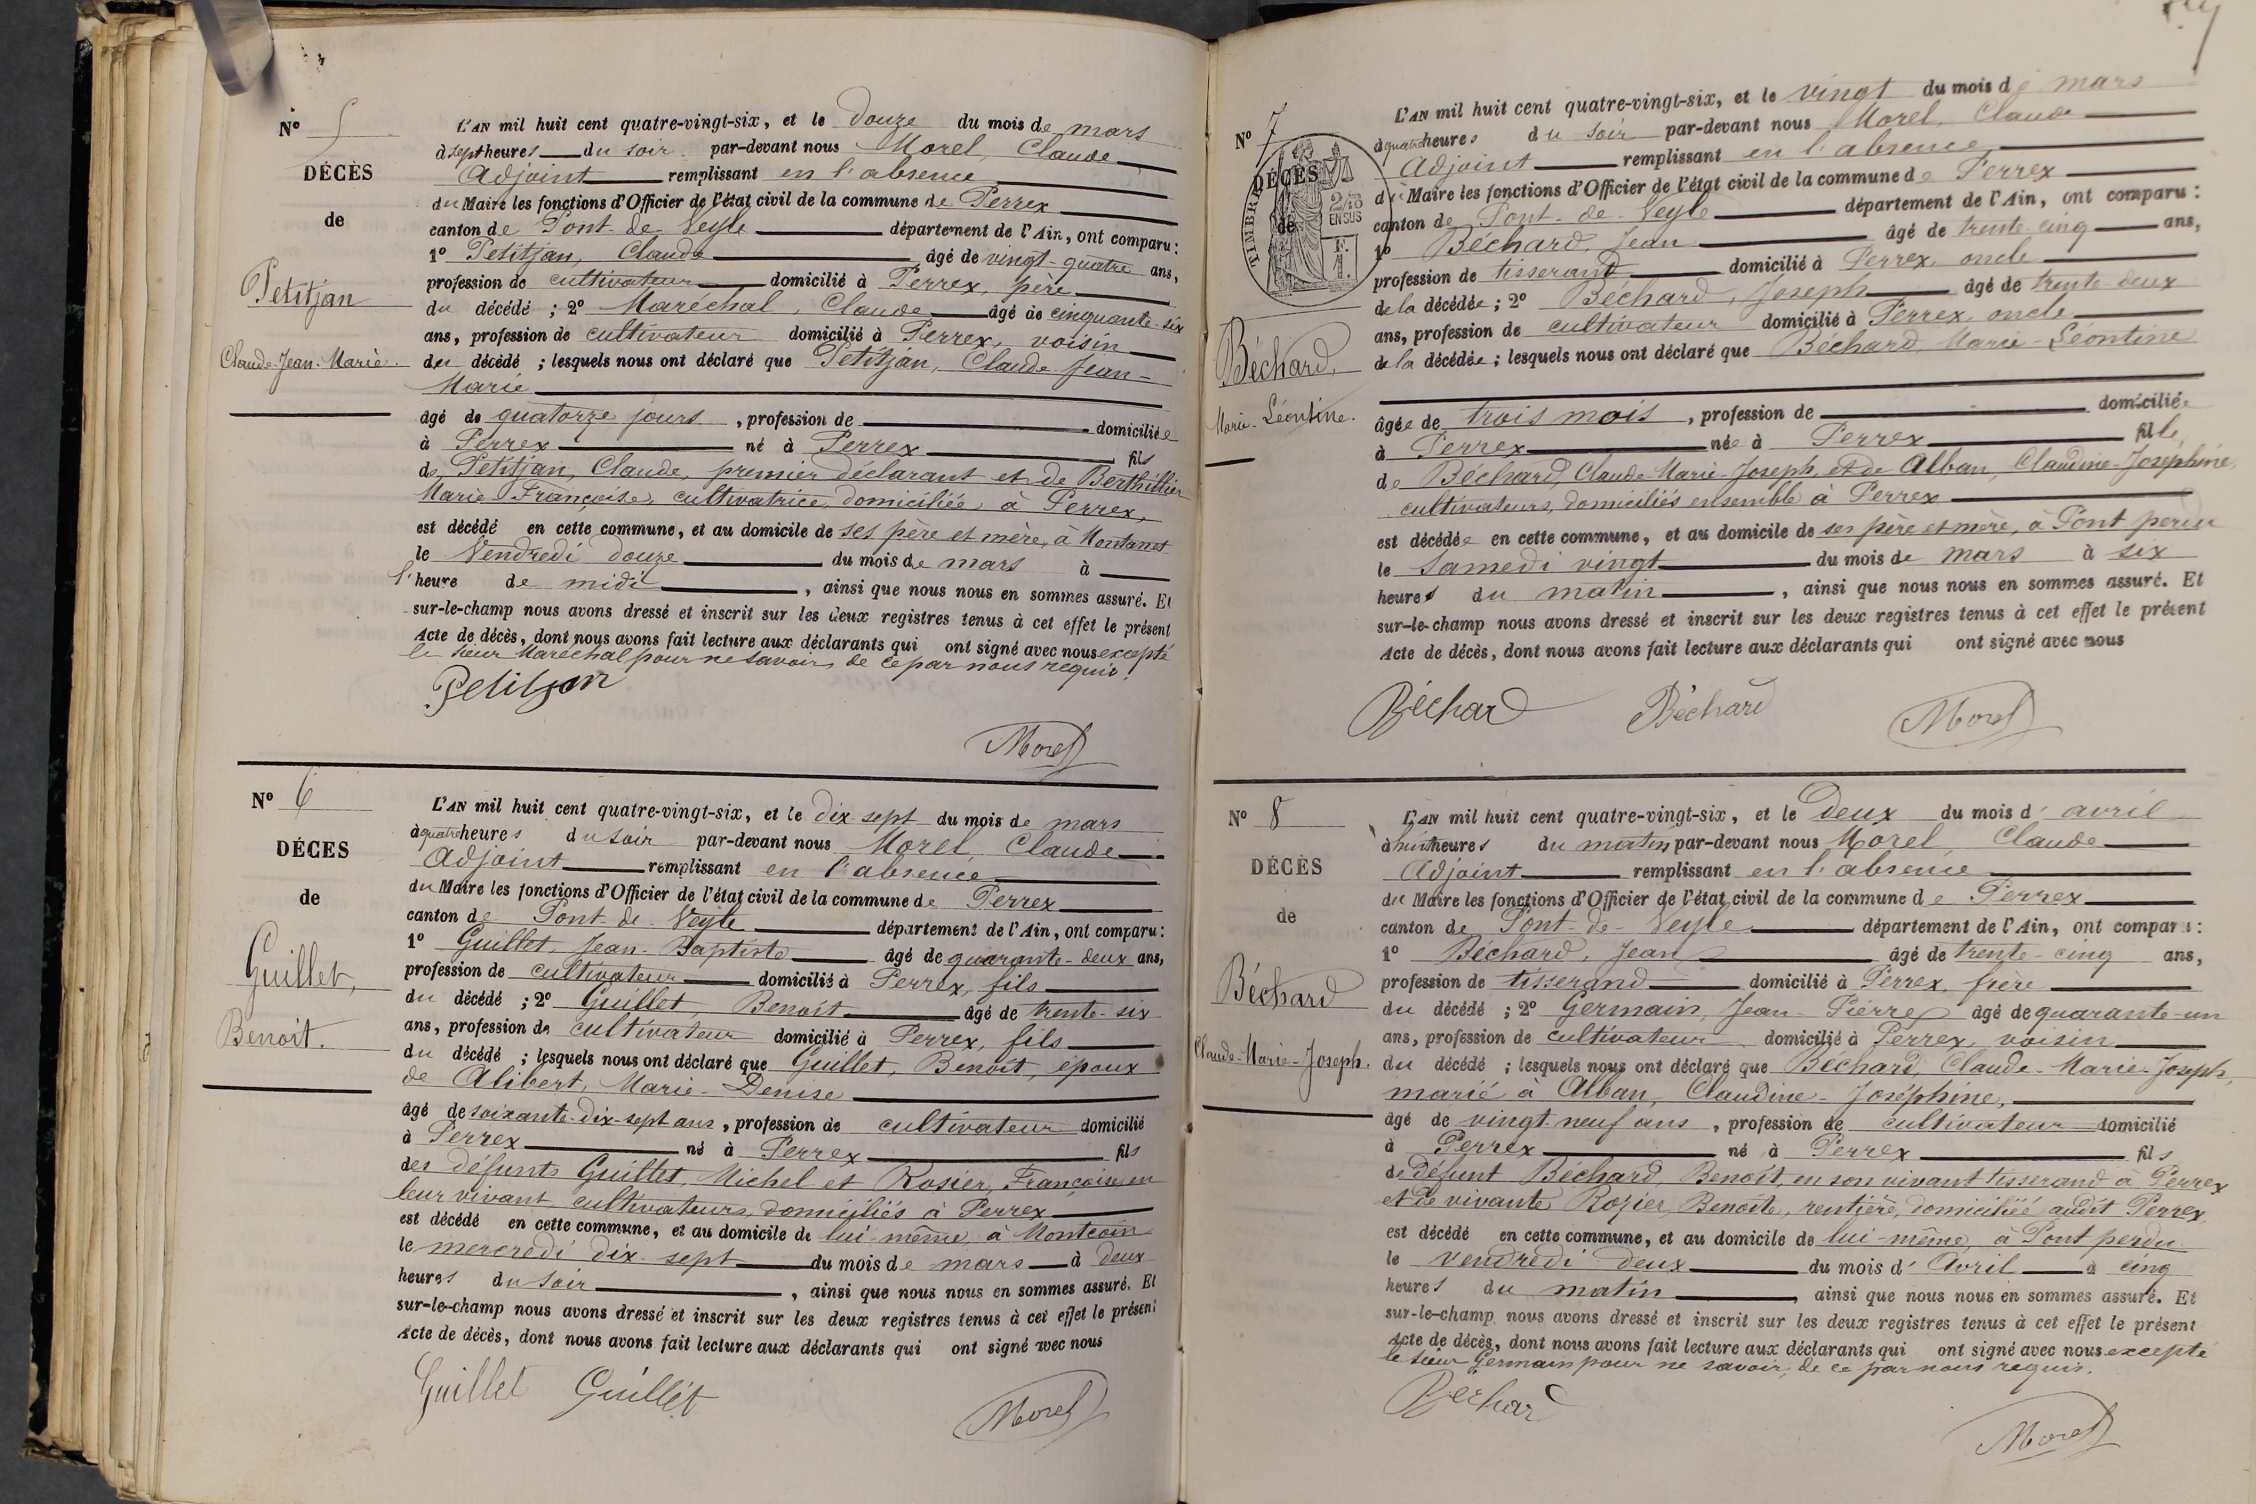 Nº 5
DÉCÈS
de
Petitjan
Claude-Jean-Marie.
L'AN mil huit cent quatre-vingt-six, et le douze du mois de mars
à sept heures du soir par-devant nous Morel, Claude
Adjoint remplissant en l'absence
du Maire les fonctions d'Officier de l'état civil de la commune de Perrex
canton de Pont-de-Veyle département de l'Ain, ont comparu :
1º Petitjan, Claude âgé de vingt-quatre ans,
profession de cultivateur domicilié à Perrex, père
du décédé ; 2º Maréchal, Claude âgé de cinquante-six
ans, profession de cultivateur domicilié à Perrex, voisin
du décédé ; lesquels nous ont déclaré que Petitjan, Claude-Jean-
Marie
âgé de quatorze jours, profession de domicilié
à Perrex né à Perrex fils
de Petitjan, Claude, premier déclarant et de Berthillier
Marie Françoise, cultivatrice, domiciliée à Perrex,
est décédé en cette commune, et au domicile de ses père et mère, à Montanet
le Vendredi douze du mois de mars à
l'heure de midi, ainsi que nous nous en sommes assuré. Et
sur-le-champ nous avons dressé et inscrit sur les deux registres tenus à cet effet le présent
Acte de décès, dont nous avons fait lecture aux déclarants qui ont signé avec nous excepté
le sieur Maréchal pour ne savoir, de ce par nous requis.
Petitjan
Morel
Nº 6
DÉCES
de
Guillet,
Benoit.
L'AN mil huit cent quatre-vingt-six, et le dix sept du mois de mars
à quatre heures du soir par-devant nous Morel, Claude
Adjoint remplissant en l'absence
du Maire les fonctions d'Officier de l'état civil de la commune de Perrex
canton de Pont-de-Veyle département de l'Ain, ont comparu :
1º Guillet, Jean-Baptiste âgé de quarante-deux ans,
profession de cultivateur domicilié à Perrex, fils
du décédé ; 2º Guillet, Benoit âgé de trente-six
ans, profession de cultivateur domicilié à Perrex, fils
du décédé ; lesquels nous ont déclaré que Guillet, Benoit, époux
de Alibert, Marie-Denise
âgé de soixante-dix-sept ans, profession de cultivateur domicilié
à Perrex né à Perrex fils
des défunts Guillet, Michel et Rosier, Françoise, en
leur vivant cultivateurs, domiciliés à Perrex
est décédé en cette commune, et au domicile de lui-même, à Montcoin
le mercredi dix-sept du mois de mars à deux
heures du soir, ainsi que nous nous en sommes assuré. Et
sur-le-champ nous avons dressé et inscrit sur les deux registres tenus à cet effet le présent
Acte de décès, dont nous avons fait lecture aux déclarants qui ont signé avec nous
Guillet Guillet
Morel
Nº 7
DÉCÈS
de
TIMBRE
2/10
EN SUS
Béchard,
Marie-Léontine.
L'AN mil huit cent quatre-vingt-six, et le vingt du mois de mars
à quatre heures du soir par-devant nous Morel, Claude
Adjoint remplissant en l'absence
du Maire les fonctions d'Officier de l'état civil de la commune de Perrex
canton de Pont-de-Veyle département de l'Ain, ont comparu :
1º Béchard, Jean âgé de trente-cinq ans,
profession de tisserand domicilié à Perrex, oncle
de la décédée ; 2º Béchard, Joseph âgé de trente-deux
ans, profession de cultivateur domicilié à Perrex, oncle
de la décédée ; lesquels nous ont déclaré que Béchard, Marie-Léontine
âgée de trois mois, profession de domiciliée
à Perrex née à Perrex fille
de Béchard, Claude-Marie-Joseph, et de Alban, Claudine-Josephine,
cultivateurs, domiciliés ensemble à Perrex
est décédée en cette commune, et au domicile de ses père et mère, à Pont perdu
le Samedi vingt du mois de mars à six
heures du matin, ainsi que nous nous en sommes assuré. Et
sur-le-champ nous avons dressé et inscrit sur les deux registres tenus à cet effet le présent
Acte de décès, dont nous avons fait lecture aux déclarants qui ont signé avec nous
Béchard Béchard Morel
Nº 8
DÉCÈS
de
Béchard
Claude-Marie-Joseph.
L'AN mil huit cent quatre-vingt-six, et le Deux du mois d'avril
à huit heures du matin par-devant nous Morel, Claude
Adjoint remplissant en l'absence
du Maire les fonctions d'Officier de l'état civil de la commune de Perrex
canton de Pont-de-Veyle département de l'Ain, ont comparu :
1º Béchard, Jean âgé de trente-cinq ans,
profession de tisserand domicilié à Perrex, frère
du décédé ; 2º Germain, Jean-Pierre âgé de quarante-un
ans, profession de cultivateur domicilié à Perrex, voisin
du décédé ; lesquels nous ont déclaré que Béchard, Claude-Marie-Joseph,
marié à Alban, Claudine-Joséphine,
âgé de vingt neuf ans, profession de cultivateur domicilié
à Perrex né à Perrex fils
de défunt Béchard, Benoît, en son vivant tisserand à Perrex
et de vivante Rozier, Benoîte, rentière, domiciliée audit Perrex,
est décédé en cette commune, et au domicile de lui-même, à Pont perdu
le vendredi deux du mois d'Avril à cinq
heures du matin, ainsi que nous nous en sommes assuré. Et
sur-le-champ nous avons dressé et inscrit sur les deux registres tenus à cet effet le présent
Acte de décès, dont nous avons fait lecture aux déclarants qui ont signé avec nous excepté
le sieur Germain pour ne savoir, de ce par nous requis.
Béchard
Morel